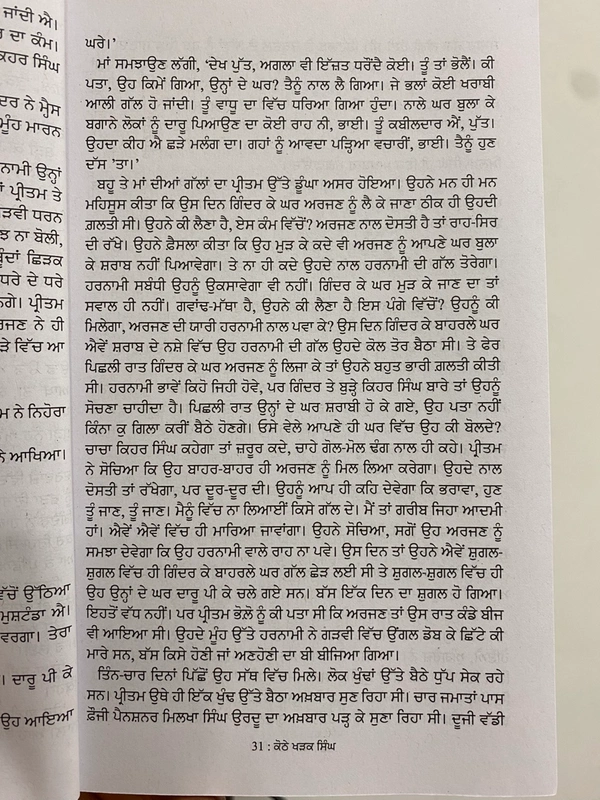 ਜਾਂਦੀ ਐ।
ਦਾ ਕੰਮ।
ਕਿਹਰ ਸਿੰਘ
ਦਰ ਨੇ ਮ੍ਹੈਸ
ਮੂੰਹ ਮਾਰਨ
ਨਾਮੀ ਉਨ੍ਹਾਂ
ਪ੍ਰੀਤਮ ਤੇ
ੜਵੀ ਧਰਨ
ਝ ਨਾ ਬੋਲੀ,
ਬੂੰਦਾਂ ਛਿੜਕ
ਧਰੇ ਦੇ ਧਰੇ
ਨਗੇ। ਪ੍ਰੀਤਮ
ਰਜਣ ਨੇ ਹੀ
ੜੇ ਵਿੱਚ ਆ
ਮ ਨੇ ਨਿਹੋਰਾ
ਨੇ ਆਖਿਆ।
ਵਿੱਚੋਂ ਉੱਠਿਆ
ਮੁਸ਼ਟੰਡਾ ਐ।
ਵਰਗਾ। ਤੇਰਾ
। ਦਾਰੂ ਪੀ ਕੇ
ਉਹ ਆਇਆ
ਘਰੇ।’
ਮਾਂ ਸਮਝਾਉਣ ਲੱਗੀ, ‘ਦੇਖ ਪੁੱਤ, ਅਗਲਾ ਵੀ ਇੱਜ਼ਤ ਧਰੌਂਦੈ ਕੋਈ। ਤੂੰ ਤਾਂ ਭੋਲੈਂ। ਕੀ
ਪਤਾ, ਉਹ ਕਿਮੇਂ ਗਿਆ, ਉਨ੍ਹਾਂ ਦੇ ਘਰ? ਤੈਨੂੰ ਨਾਲ ਲੈ ਗਿਆ। ਜੇ ਭਲਾਂ ਕੋਈ ਖਰਾਬੀ
ਆਲੀ ਗੱਲ ਹੋ ਜਾਂਦੀ। ਤੂੰ ਵਾਧੂ ਦਾ ਵਿੱਚ ਧਰਿਆ ਗਿਆ ਹੁੰਦਾ। ਨਾਲੇ ਘਰ ਬੁਲਾ ਕੇ
ਬਗਾਨੇ ਲੋਕਾਂ ਨੂੰ ਦਾਰੂ ਪਿਆਉਣ ਦਾ ਕੋਈ ਰਾਹ ਨੀ, ਭਾਈ। ਤੂੰ ਕਬੀਲਦਾਰ ਐਂ, ਪੁੱਤ।
ਉਹਦਾ ਕੀਹ ਐ ਛੜੇ ਮਲੰਗ ਦਾ। ਗਹਾਂ ਨੂੰ ਆਵਦਾ ਪੜ੍ਹਿਆ ਵਚਾਰੀਂ, ਭਾਈ। ਤੈਨੂੰ ਹੁਣ
ਦੱਸ ’ਤਾ।’
ਬਹੂ ਤੇ ਮਾਂ ਦੀਆਂ ਗੱਲਾਂ ਦਾ ਪ੍ਰੀਤਮ ਉੱਤੇ ਡੂੰਘਾ ਅਸਰ ਹੋਇਆ। ਉਹਨੇ ਮਨ ਹੀ ਮਨ
ਮਹਿਸੂਸ ਕੀਤਾ ਕਿ ਉਸ ਦਿਨ ਗਿੰਦਰ ਕੇ ਘਰ ਅਰਜਣ ਨੂੰ ਲੈ ਕੇ ਜਾਣਾ ਠੀਕ ਹੀ ਉਹਦੀ
ਗ਼ਲਤੀ ਸੀ। ਉਹਨੇ ਕੀ ਲੈਣਾ ਹੈ, ਏਸ ਕੰਮ ਵਿੱਚੋਂ? ਅਰਜਣ ਨਾਲ ਦੋਸਤੀ ਹੈ ਤਾਂ ਰਾਹ-ਸਿਰ
ਦੀ ਰੱਖੇ। ਉਹਨੇ ਫ਼ੈਸਲਾ ਕੀਤਾ ਕਿ ਉਹ ਮੁੜ ਕੇ ਕਦੇ ਵੀ ਅਰਜਣ ਨੂੰ ਆਪਣੇ ਘਰ ਬੁਲਾ
ਕੇ ਸ਼ਰਾਬ ਨਹੀਂ ਪਿਆਵੇਗਾ। ਤੇ ਨਾ ਹੀ ਕਦੇ ਉਹਦੇ ਨਾਲ ਹਰਨਾਮੀ ਦੀ ਗੱਲ ਤੋਰੇਗਾ।
ਹਰਨਾਮੀ ਸਬੰਧੀ ਉਹਨੂੰ ਉਕਸਾਵੇਗਾ ਵੀ ਨਹੀਂ। ਗਿੰਦਰ ਕੇ ਘਰ ਮੁੜ ਕੇ ਜਾਣ ਦਾ ਤਾਂ
ਸਵਾਲ ਹੀ ਨਹੀਂ। ਗਵਾਂਢ-ਮੱਥਾ ਹੈ, ਉਹਨੇ ਕੀ ਲੈਣਾ ਹੈ ਇਸ ਪੰਗੇ ਵਿੱਚੋਂ? ਉਹਨੂੰ ਕੀ
ਮਿਲੇਗਾ, ਅਰਜਣ ਦੀ ਯਾਰੀ ਹਰਨਾਮੀ ਨਾਲ ਪਵਾ ਕੇ? ਉਸ ਦਿਨ ਗਿੰਦਰ ਕੇ ਬਾਹਰਲੇ ਘਰ
ਐਵੇਂ ਸ਼ਰਾਬ ਦੇ ਨਸ਼ੇ ਵਿੱਚ ਉਹ ਹਰਨਾਮੀ ਦੀ ਗੱਲ ਉਹਦੇ ਕੋਲ ਤੋਰ ਬੈਠਾ ਸੀ। ਤੇ ਫੇਰ
ਪਿਛਲੀ ਰਾਤ ਗਿੰਦਰ ਕੇ ਘਰ ਅਰਜਣ ਨੂੰ ਲਿਜਾ ਕੇ ਤਾਂ ਉਹਨੇ ਬਹੁਤ ਭਾਰੀ ਗ਼ਲਤੀ ਕੀਤੀ
ਸੀ। ਹਰਨਾਮੀ ਭਾਵੇਂ ਕਿਹੋ ਜਿਹੀ ਹੋਵੇ, ਪਰ ਗਿੰਦਰ ਤੇ ਬੁੜ੍ਹੇ ਕਿਹਰ ਸਿੰਘ ਬਾਰੇ ਤਾਂ ਉਹਨੂੰ
ਸੋਚਣਾ ਚਾਹੀਦਾ ਹੈ। ਪਿਛਲੀ ਰਾਤ ਉਨ੍ਹਾਂ ਦੇ ਘਰ ਸ਼ਰਾਬੀ ਹੋ ਕੇ ਗਏ, ਉਹ ਪਤਾ ਨਹੀਂ
ਕਿੰਨਾ ਕੁ ਗਿਲਾ ਕਰੀਂ ਬੈਠੇ ਹੋਣਗੇ। ਓਸੇ ਵੇਲੇ ਆਪਣੇ ਹੀ ਘਰ ਵਿੱਚ ਉਹ ਕੀ ਬੋਲਦੇ?
ਚਾਚਾ ਕਿਹਰ ਸਿੰਘ ਕਹੇਗਾ ਤਾਂ ਜ਼ਰੂਰ ਕਦੇ, ਚਾਹੇ ਗੋਲ-ਮੋਲ ਢੰਗ ਨਾਲ ਹੀ ਕਹੇ। ਪ੍ਰੀਤਮ
ਨੇ ਸੋਚਿਆ ਕਿ ਉਹ ਬਾਹਰ-ਬਾਹਰ ਹੀ ਅਰਜਣ ਨੂੰ ਮਿਲ ਲਿਆ ਕਰੇਗਾ। ਉਹਦੇ ਨਾਲ
ਦੋਸਤੀ ਤਾਂ ਰੱਖੇਗਾ, ਪਰ ਦੂਰ-ਦੂਰ ਦੀ। ਉਹਨੂੰ ਆਪ ਹੀ ਕਹਿ ਦੇਵੇਗਾ ਕਿ ਭਰਾਵਾ, ਹੁਣ
ਤੂੰ ਜਾਣ, ਤੂੰ ਜਾਣ। ਮੈਨੂੰ ਵਿੱਚ ਨਾ ਲਿਆਈਂ ਕਿਸੇ ਗੱਲ ਦੇ। ਮੈਂ ਤਾਂ ਗਰੀਬ ਜਿਹਾ ਆਦਮੀ
ਹਾਂ। ਐਵੇਂ ਐਵੇਂ ਵਿੱਚ ਹੀ ਮਾਰਿਆ ਜਾਵਾਂਗਾ। ਉਹਨੇ ਸੋਚਿਆ, ਸਗੋਂ ਉਹ ਅਰਜਣ ਨੂੰ
ਸਮਝਾ ਦੇਵੇਗਾ ਕਿ ਉਹ ਹਰਨਾਮੀ ਵਾਲੇ ਰਾਹ ਨਾ ਪਵੇ। ਉਸ ਦਿਨ ਤਾਂ ਉਹਨੇ ਐਵੇਂ ਸ਼ੁਗਲ-
ਸ਼ੁਗਲ ਵਿੱਚ ਹੀ ਗਿੰਦਰ ਕੇ ਬਾਹਰਲੇ ਘਰ ਗੱਲ ਛੇੜ ਲਈ ਸੀ ਤੇ ਸ਼ੁਗਲ-ਸ਼ੁਗਲ ਵਿੱਚ ਹੀ
ਉਹ ਉਨ੍ਹਾਂ ਦੇ ਘਰ ਦਾਰੂ ਪੀ ਕੇ ਚਲੇ ਗਏ ਸਨ। ਬੱਸ ਇੱਕ ਦਿਨ ਦਾ ਸ਼ੁਗਲ ਹੋ ਗਿਆ।
ਇਹਤੋਂ ਵੱਧ ਨਹੀਂ। ਪਰ ਪ੍ਰੀਤਮ ਭੋਲ਼ੇ ਨੂੰ ਕੀ ਪਤਾ ਸੀ ਕਿ ਅਰਜਣ ਤਾਂ ਉਸ ਰਾਤ ਕੰਡੇ ਬੀਜ
ਵੀ ਆਇਆ ਸੀ। ਉਹਦੇ ਮੂੰਹ ਉੱਤੇ ਹਰਨਾਮੀ ਨੇ ਗੜਵੀ ਵਿੱਚ ਉਂਗਲ ਡੋਬ ਕੇ ਛਿੱਟੇ ਕੀ
ਮਾਰੇ ਸਨ, ਬੱਸ ਕਿਸੇ ਹੋਣੀ ਜਾਂ ਅਣਹੋਣੀ ਦਾ ਬੀ ਬੀਜਿਆ ਗਿਆ।
ਤਿੰਨ-ਚਾਰ ਦਿਨਾਂ ਪਿੱਛੋਂ ਉਹ ਸੱਥ ਵਿੱਚ ਮਿਲੇ। ਲੋਕ ਖੁੰਢਾਂ ਉੱਤੇ ਬੈਠੇ ਧੁੱਪ ਸੇਕ ਰਹੇ
ਸਨ। ਪ੍ਰੀਤਮ ਉਥੇ ਹੀ ਇੱਕ ਖੁੰਢ ਉੱਤੇ ਬੈਠਾ ਅਖ਼ਬਾਰ ਸੁਣ ਰਿਹਾ ਸੀ। ਚਾਰ ਜਮਾਤਾਂ ਪਾਸ
ਫ਼ੌਜੀ ਪੈਨਸ਼ਨਰ ਮਿਲਖਾ ਸਿੰਘ ਉਰਦੂ ਦਾ ਅਖ਼ਬਾਰ ਪੜ੍ਹ ਕੇ ਸੁਣਾ ਰਿਹਾ ਸੀ। ਦੂਜੀ ਵੱਡੀ
31 : ਕੋਠੇ ਖੜਕ ਸਿੰਘ